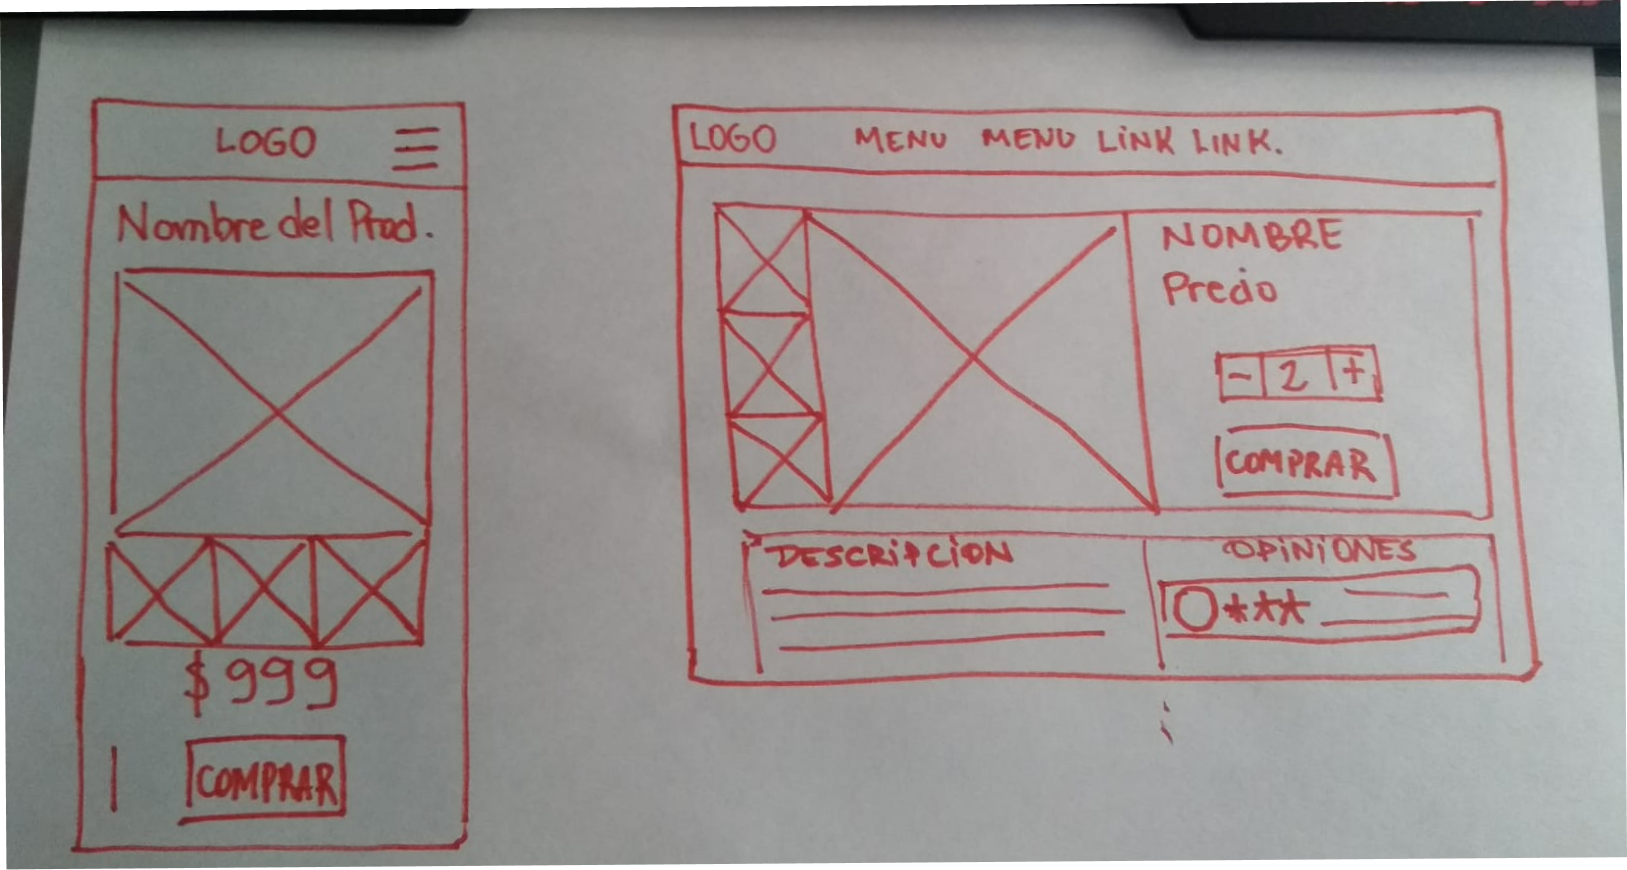 LOGO
Nombre del Prod.
$999
COMPRAR
LOGO MENU MENU LINK LINK.
NOMBRE
Precio
- 2 +
COMPRAR
DESCRIPCION
OPINIONES
***